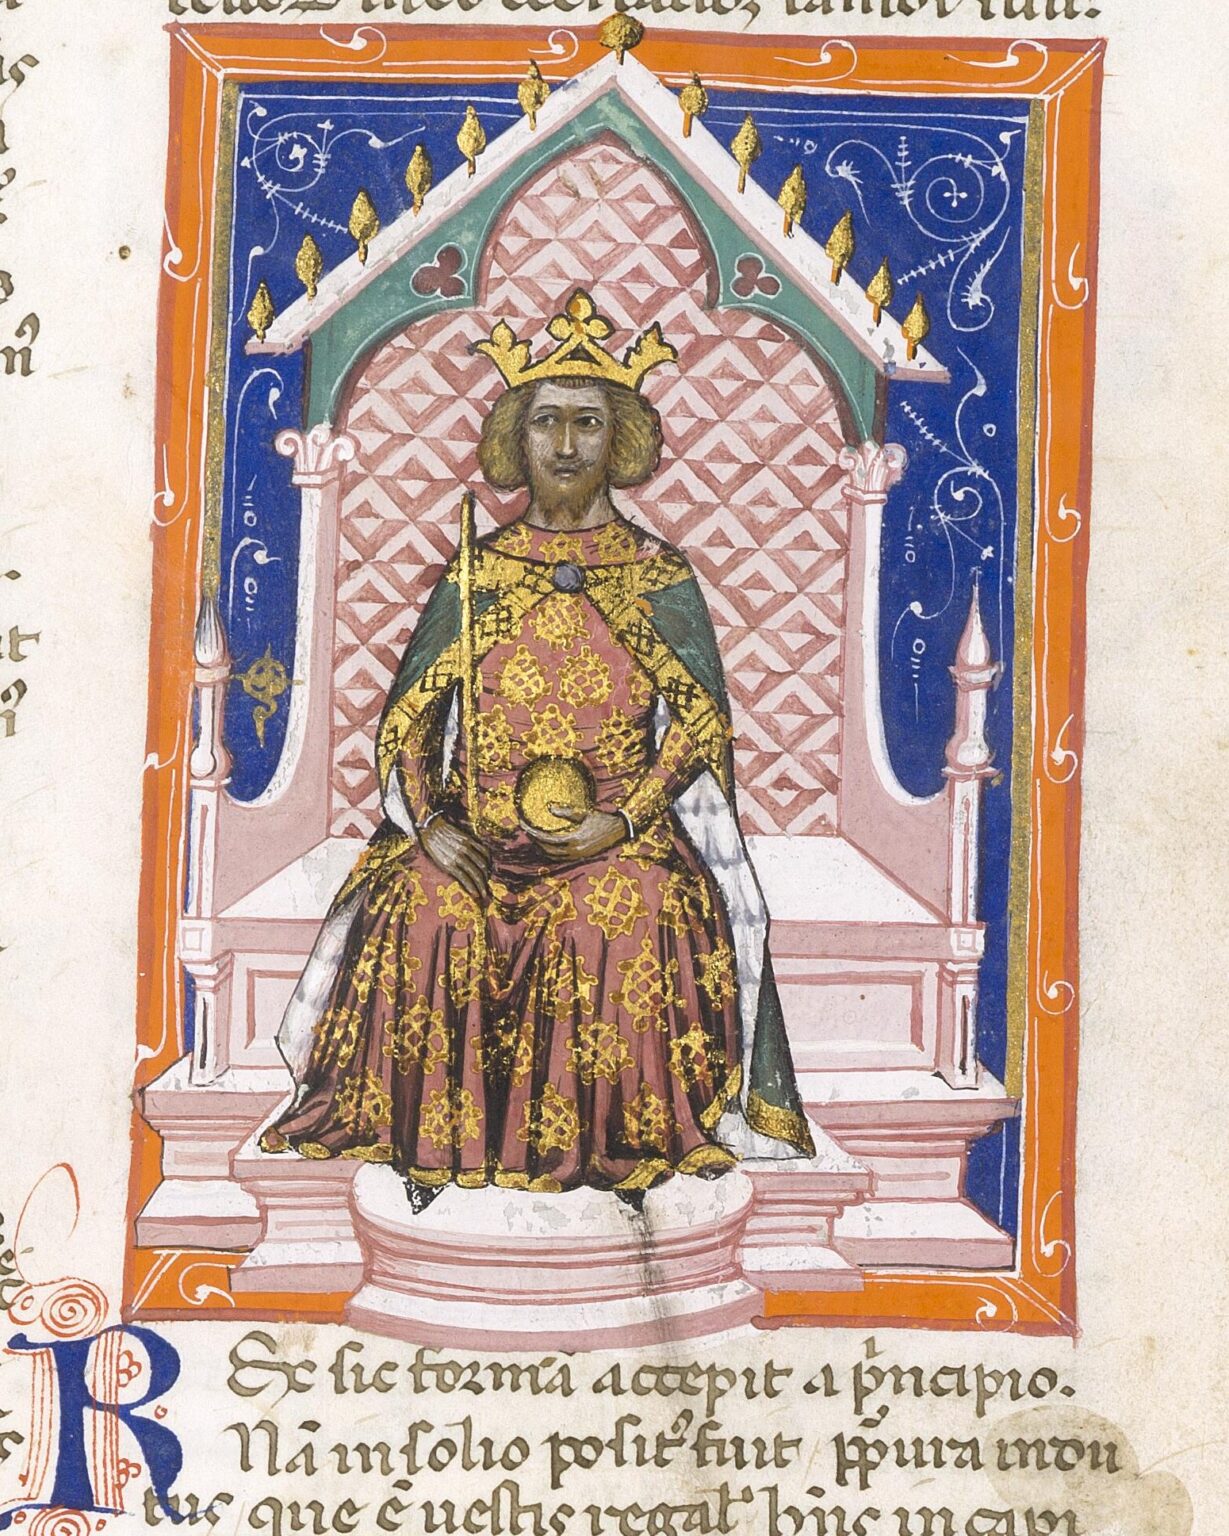 Rex sic formā accepit a p̄ncipio.
Nā in solio positꝰ fuit pp̄ura indu
tus que ē uestis regal̄ hn̄s in capi